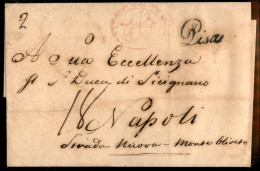 2
Pisa
A Sua Eccellenza
Il S.r Duca di Sicignano
18 Napoli
Strada Nuova - Monte Oliveto